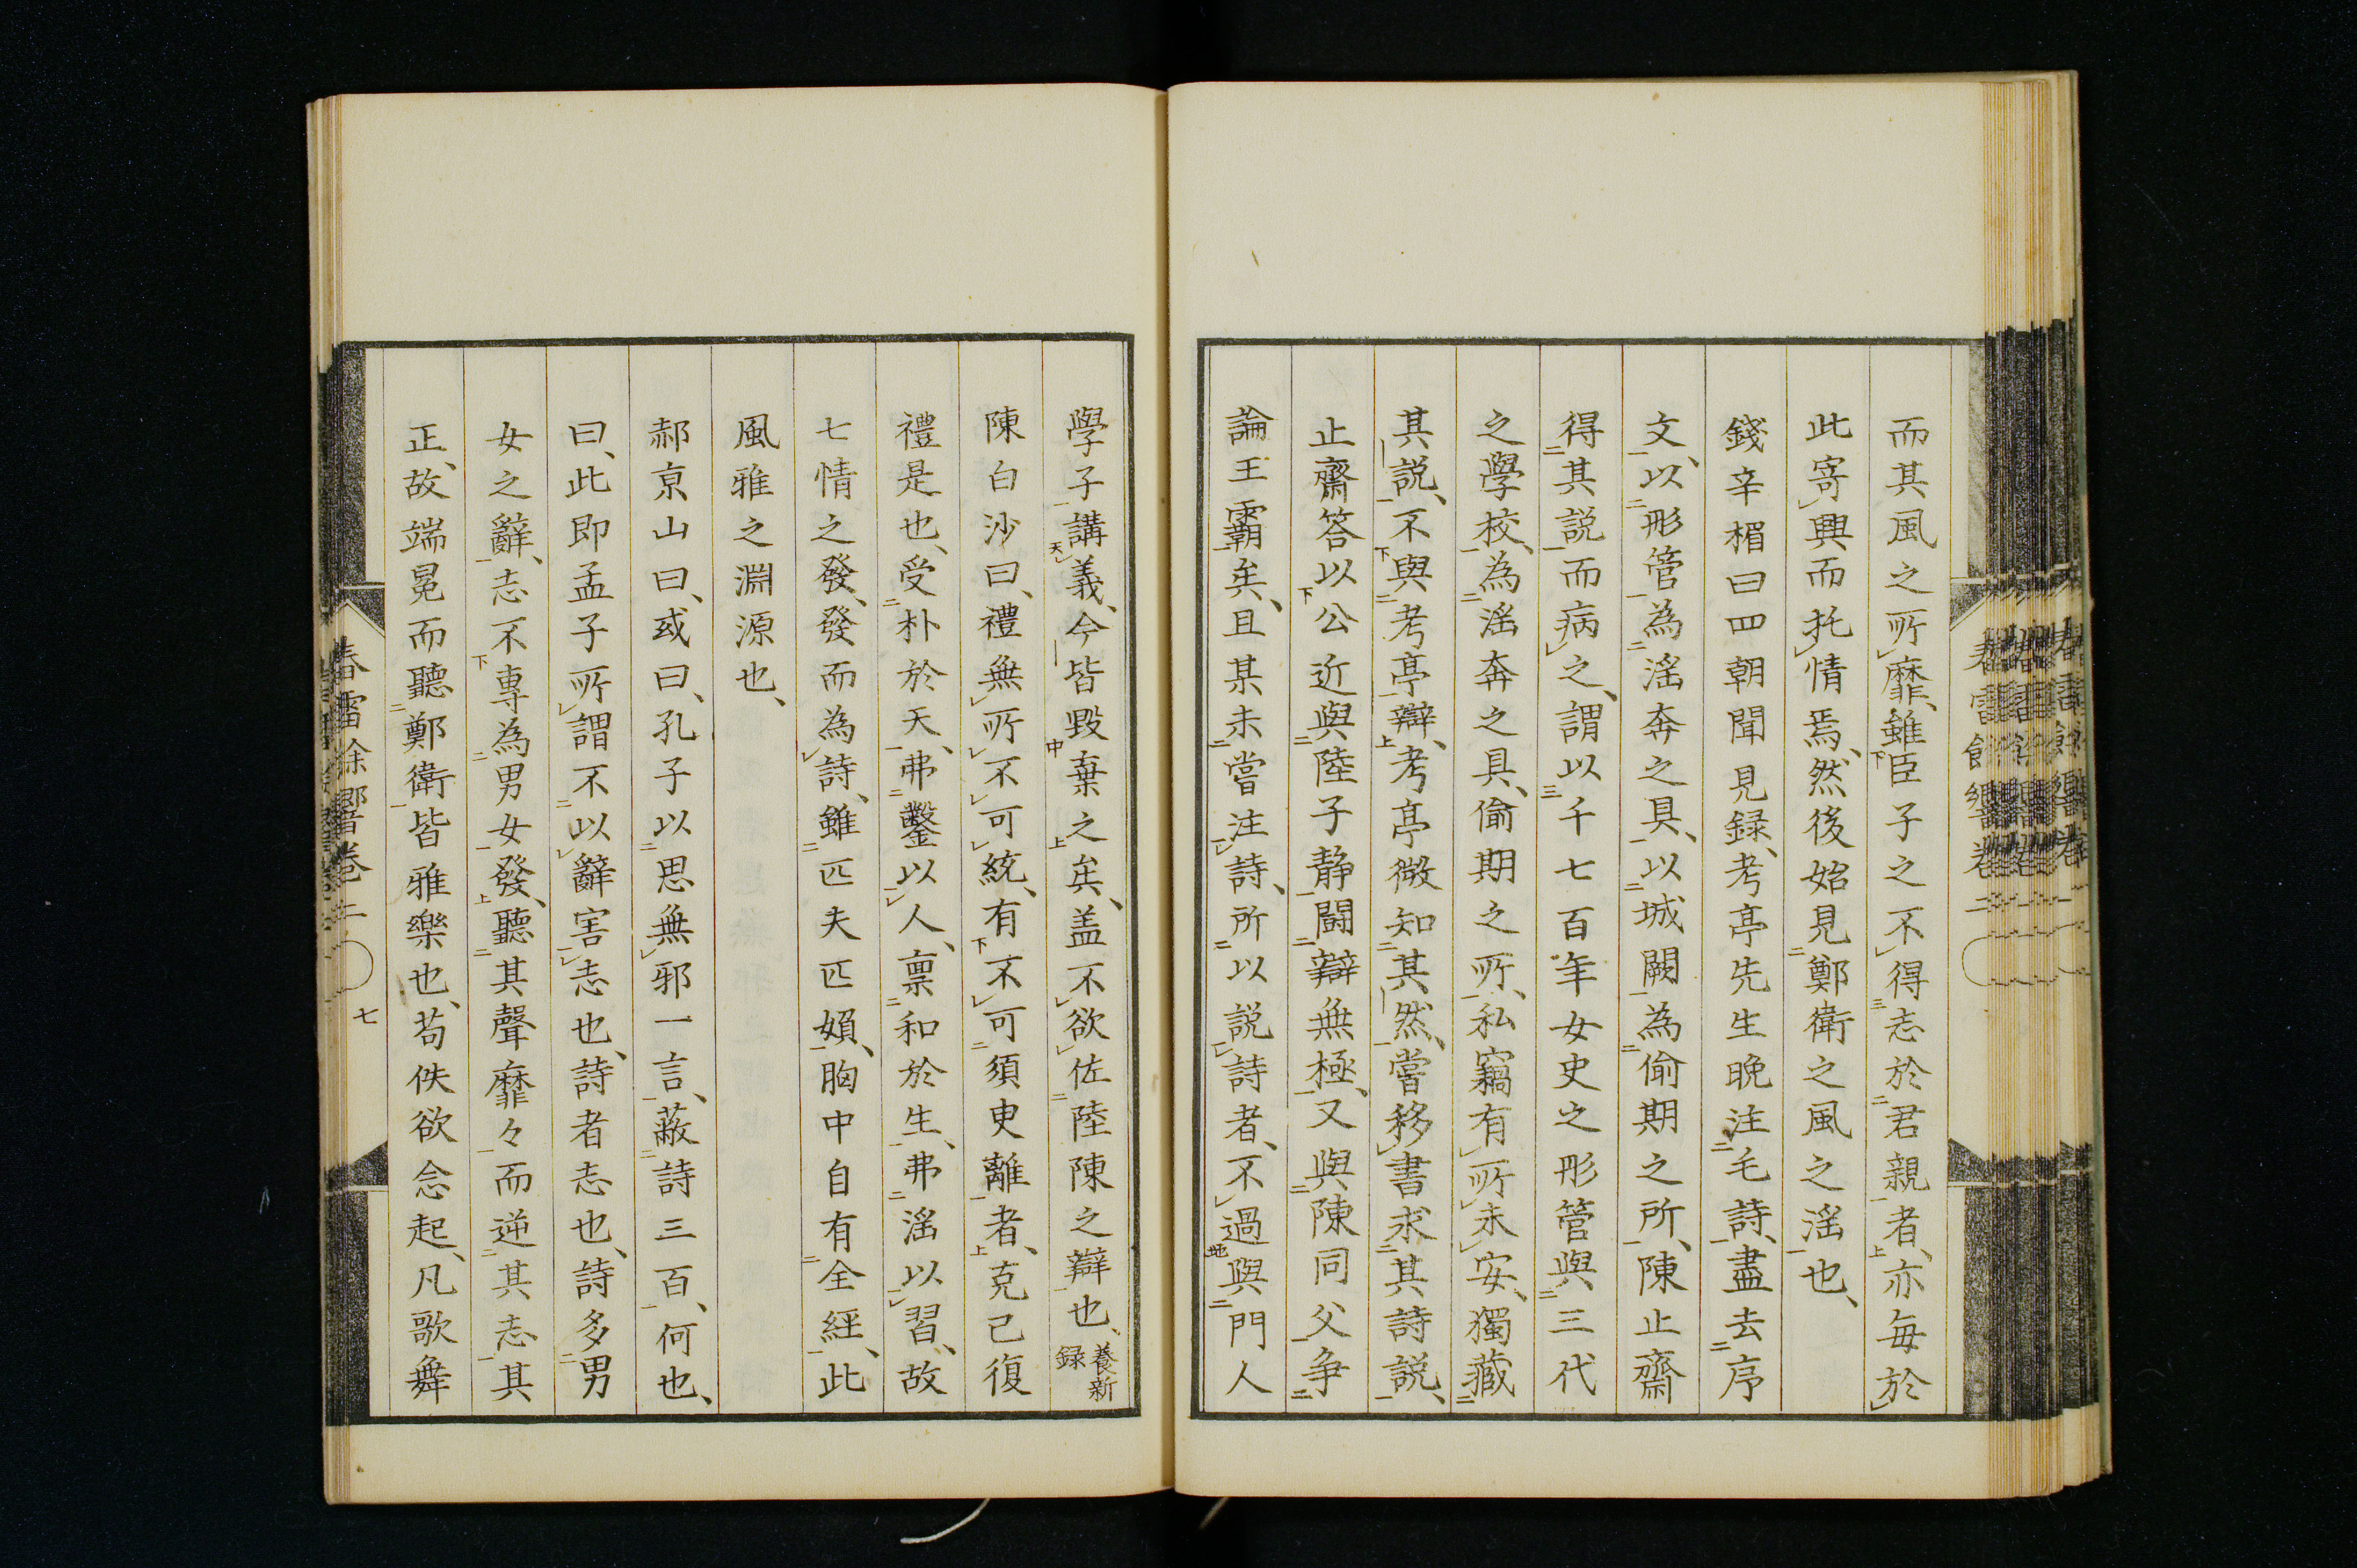 而其風之所靡、雖臣子之不得志於君親者、亦毎於
此寄興而托情焉、然後始見鄭衛之風之淫也、
錢辛楣曰四朝聞見録、考亭先生晩注毛詩、盡去序
文、以彤管為淫奔之具、以城闕為偷期之所、陳止齋
得其説而病之、謂以千七百年女史之彤管與三代
之學校、為淫奔之具、偷期之所、私竊有所未安、獨藏
其説、不與考亭辯、考亭微知其然、嘗移書求其詩説、
止齋答以公近與陸子静鬪辯無極、又與陳同父争
論王霸矣、且某未嘗注詩、所以説詩者、不過與門人
學子講義、今皆毀棄之矣、盖不欲佐陸陳之辯也、養新録
陳白沙曰、禮無所不可統、有不可須臾離者、克己復
禮是也、受朴於天、弗鑿以人、禀和於生、弗淫以習、故
七情之發、發而為詩、雖匹夫匹婦、胸中自有全經、此
風雅之淵源也、
郝京山曰、或曰、孔子以思無邪一言、蔽詩三百、何也、
曰、此即孟子所謂不以辭害志也、詩者志也、詩多男
女之辭、志不專為男女發、聽其聲靡々而逆其志其
正、故端冕而聽鄭衛皆雅樂也、苟佚欲念起、凡歌舞
春雷餘響卷二
七